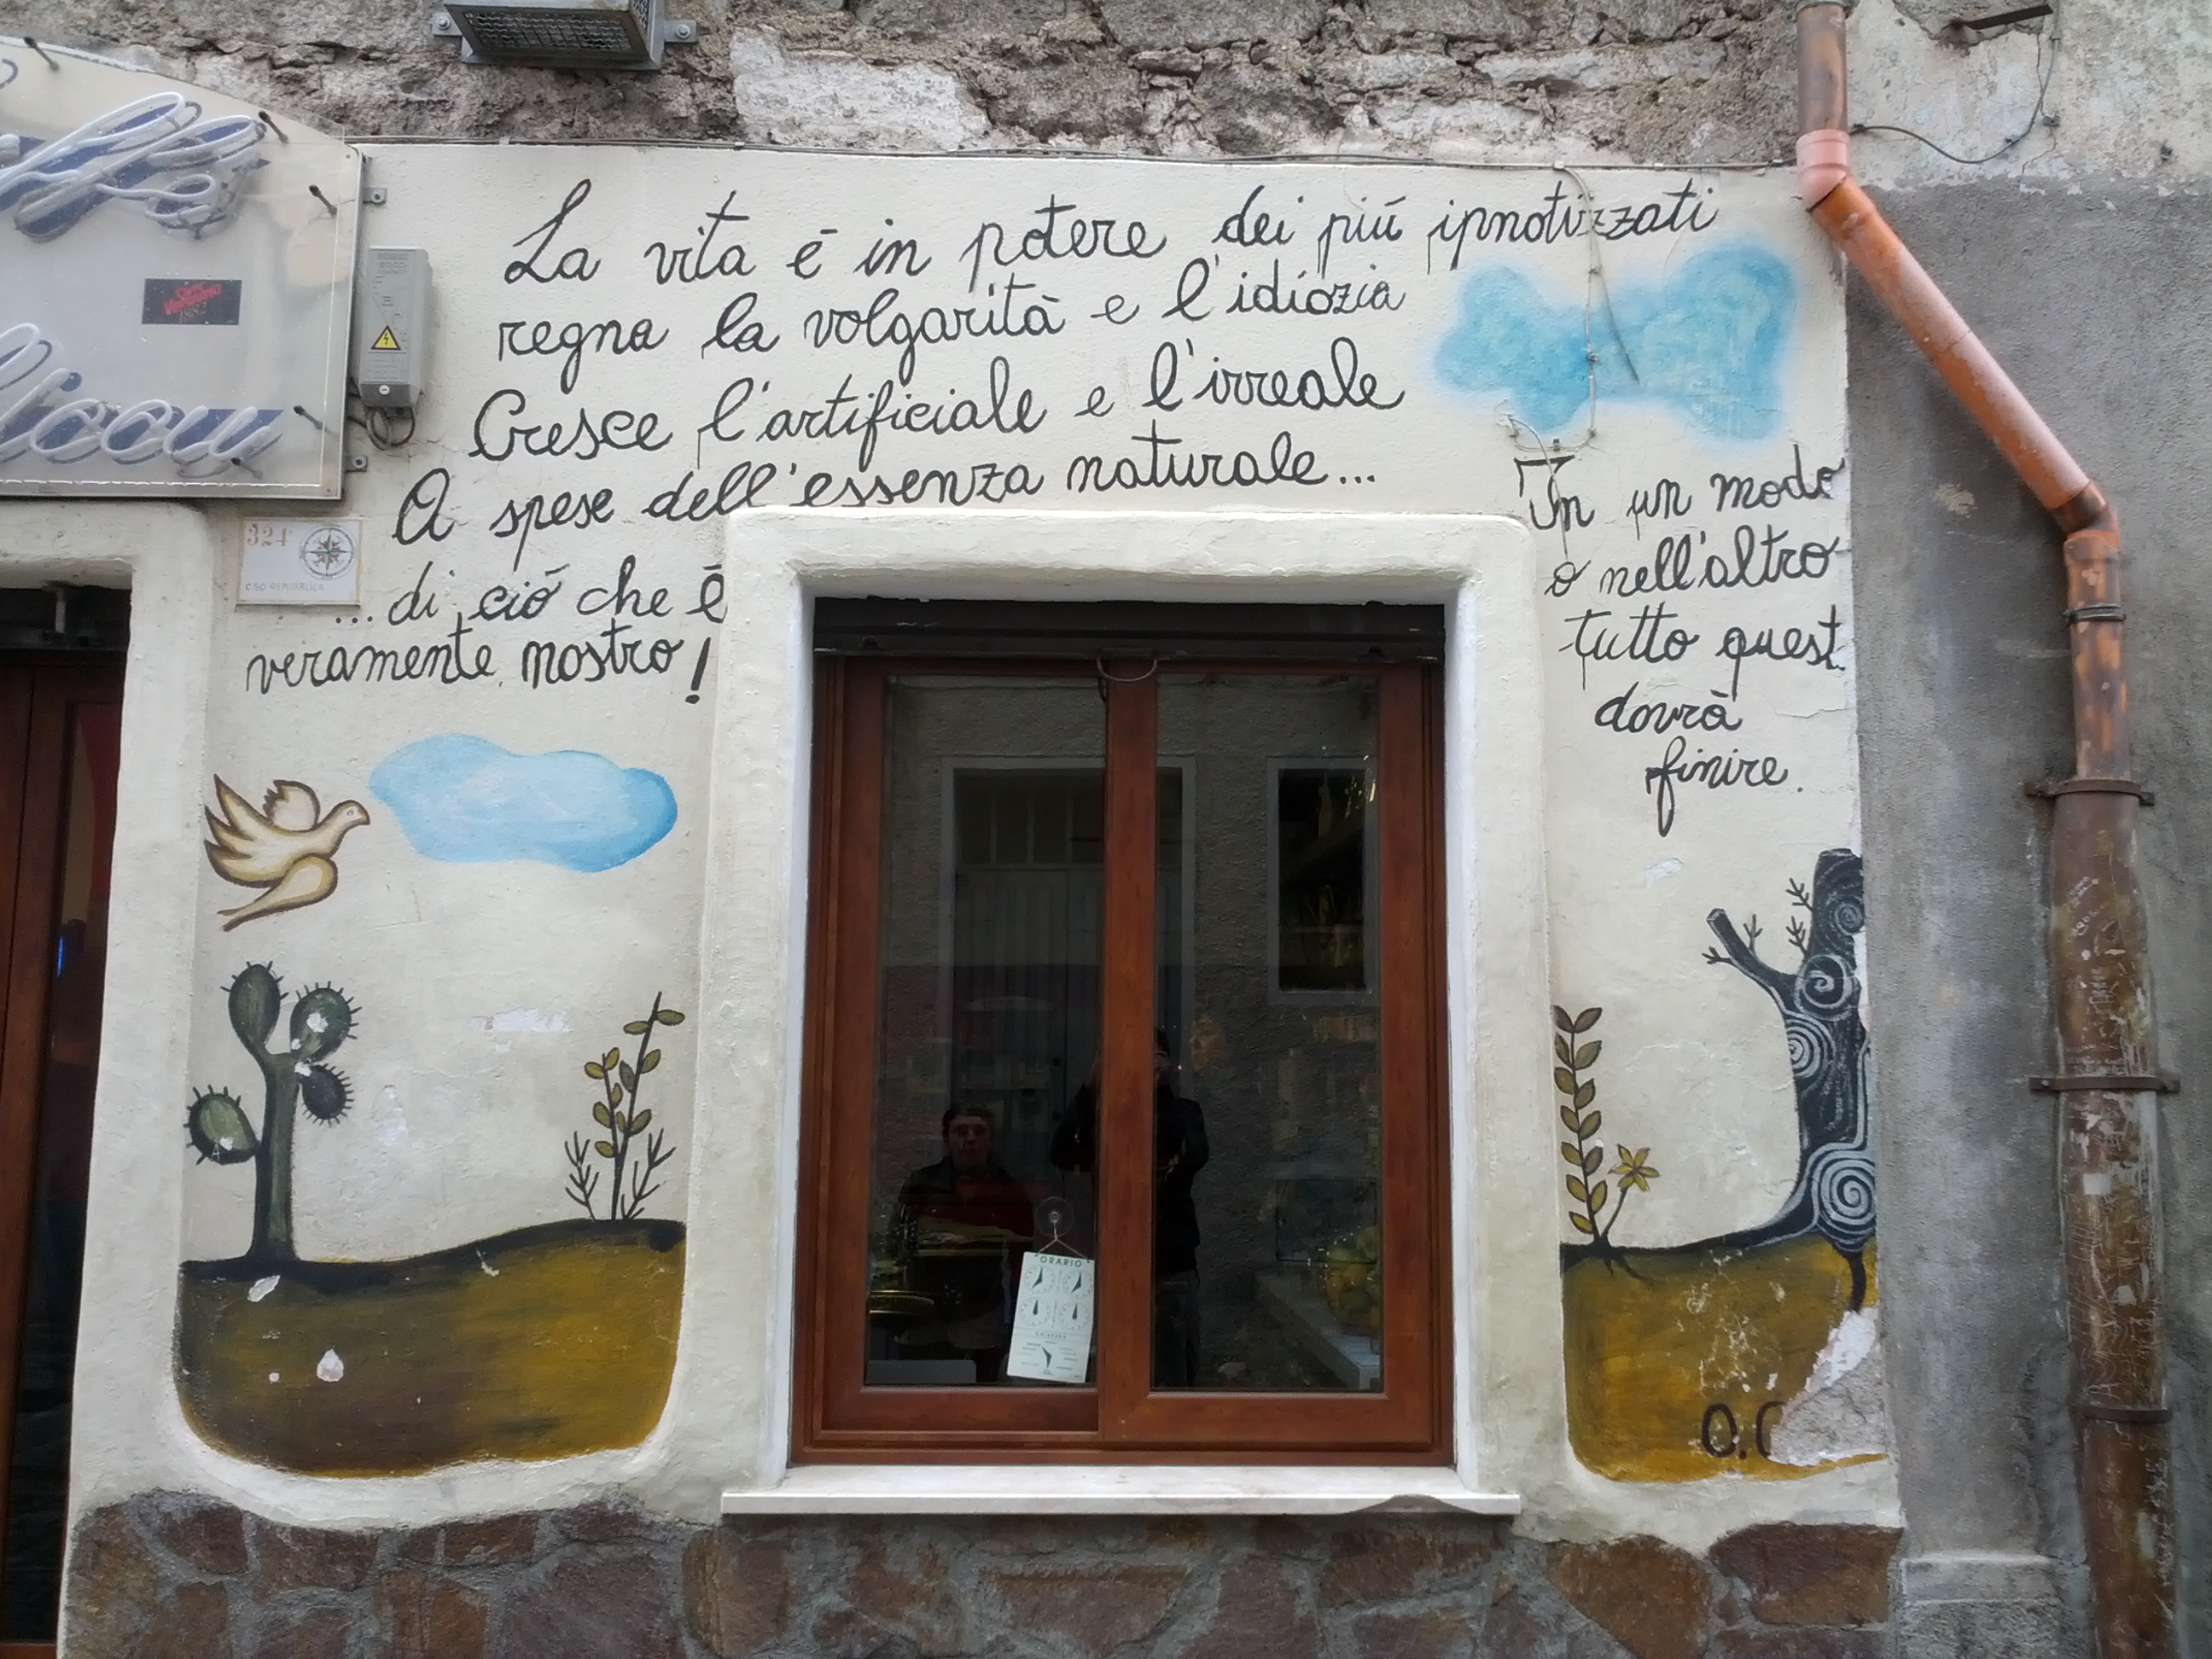 La vita é in potere dei piú ipnotizzati
regna la volgarità e l'idiozia
Cresce l'artificiale e l'irreale
A spese dell'essenza naturale...
...di ció che é
veramente nostro!
In un modo
o nell'altro
tutto quest
dovrà
finire.
324
C.SO REPUBBLICA
ORARIO
O.